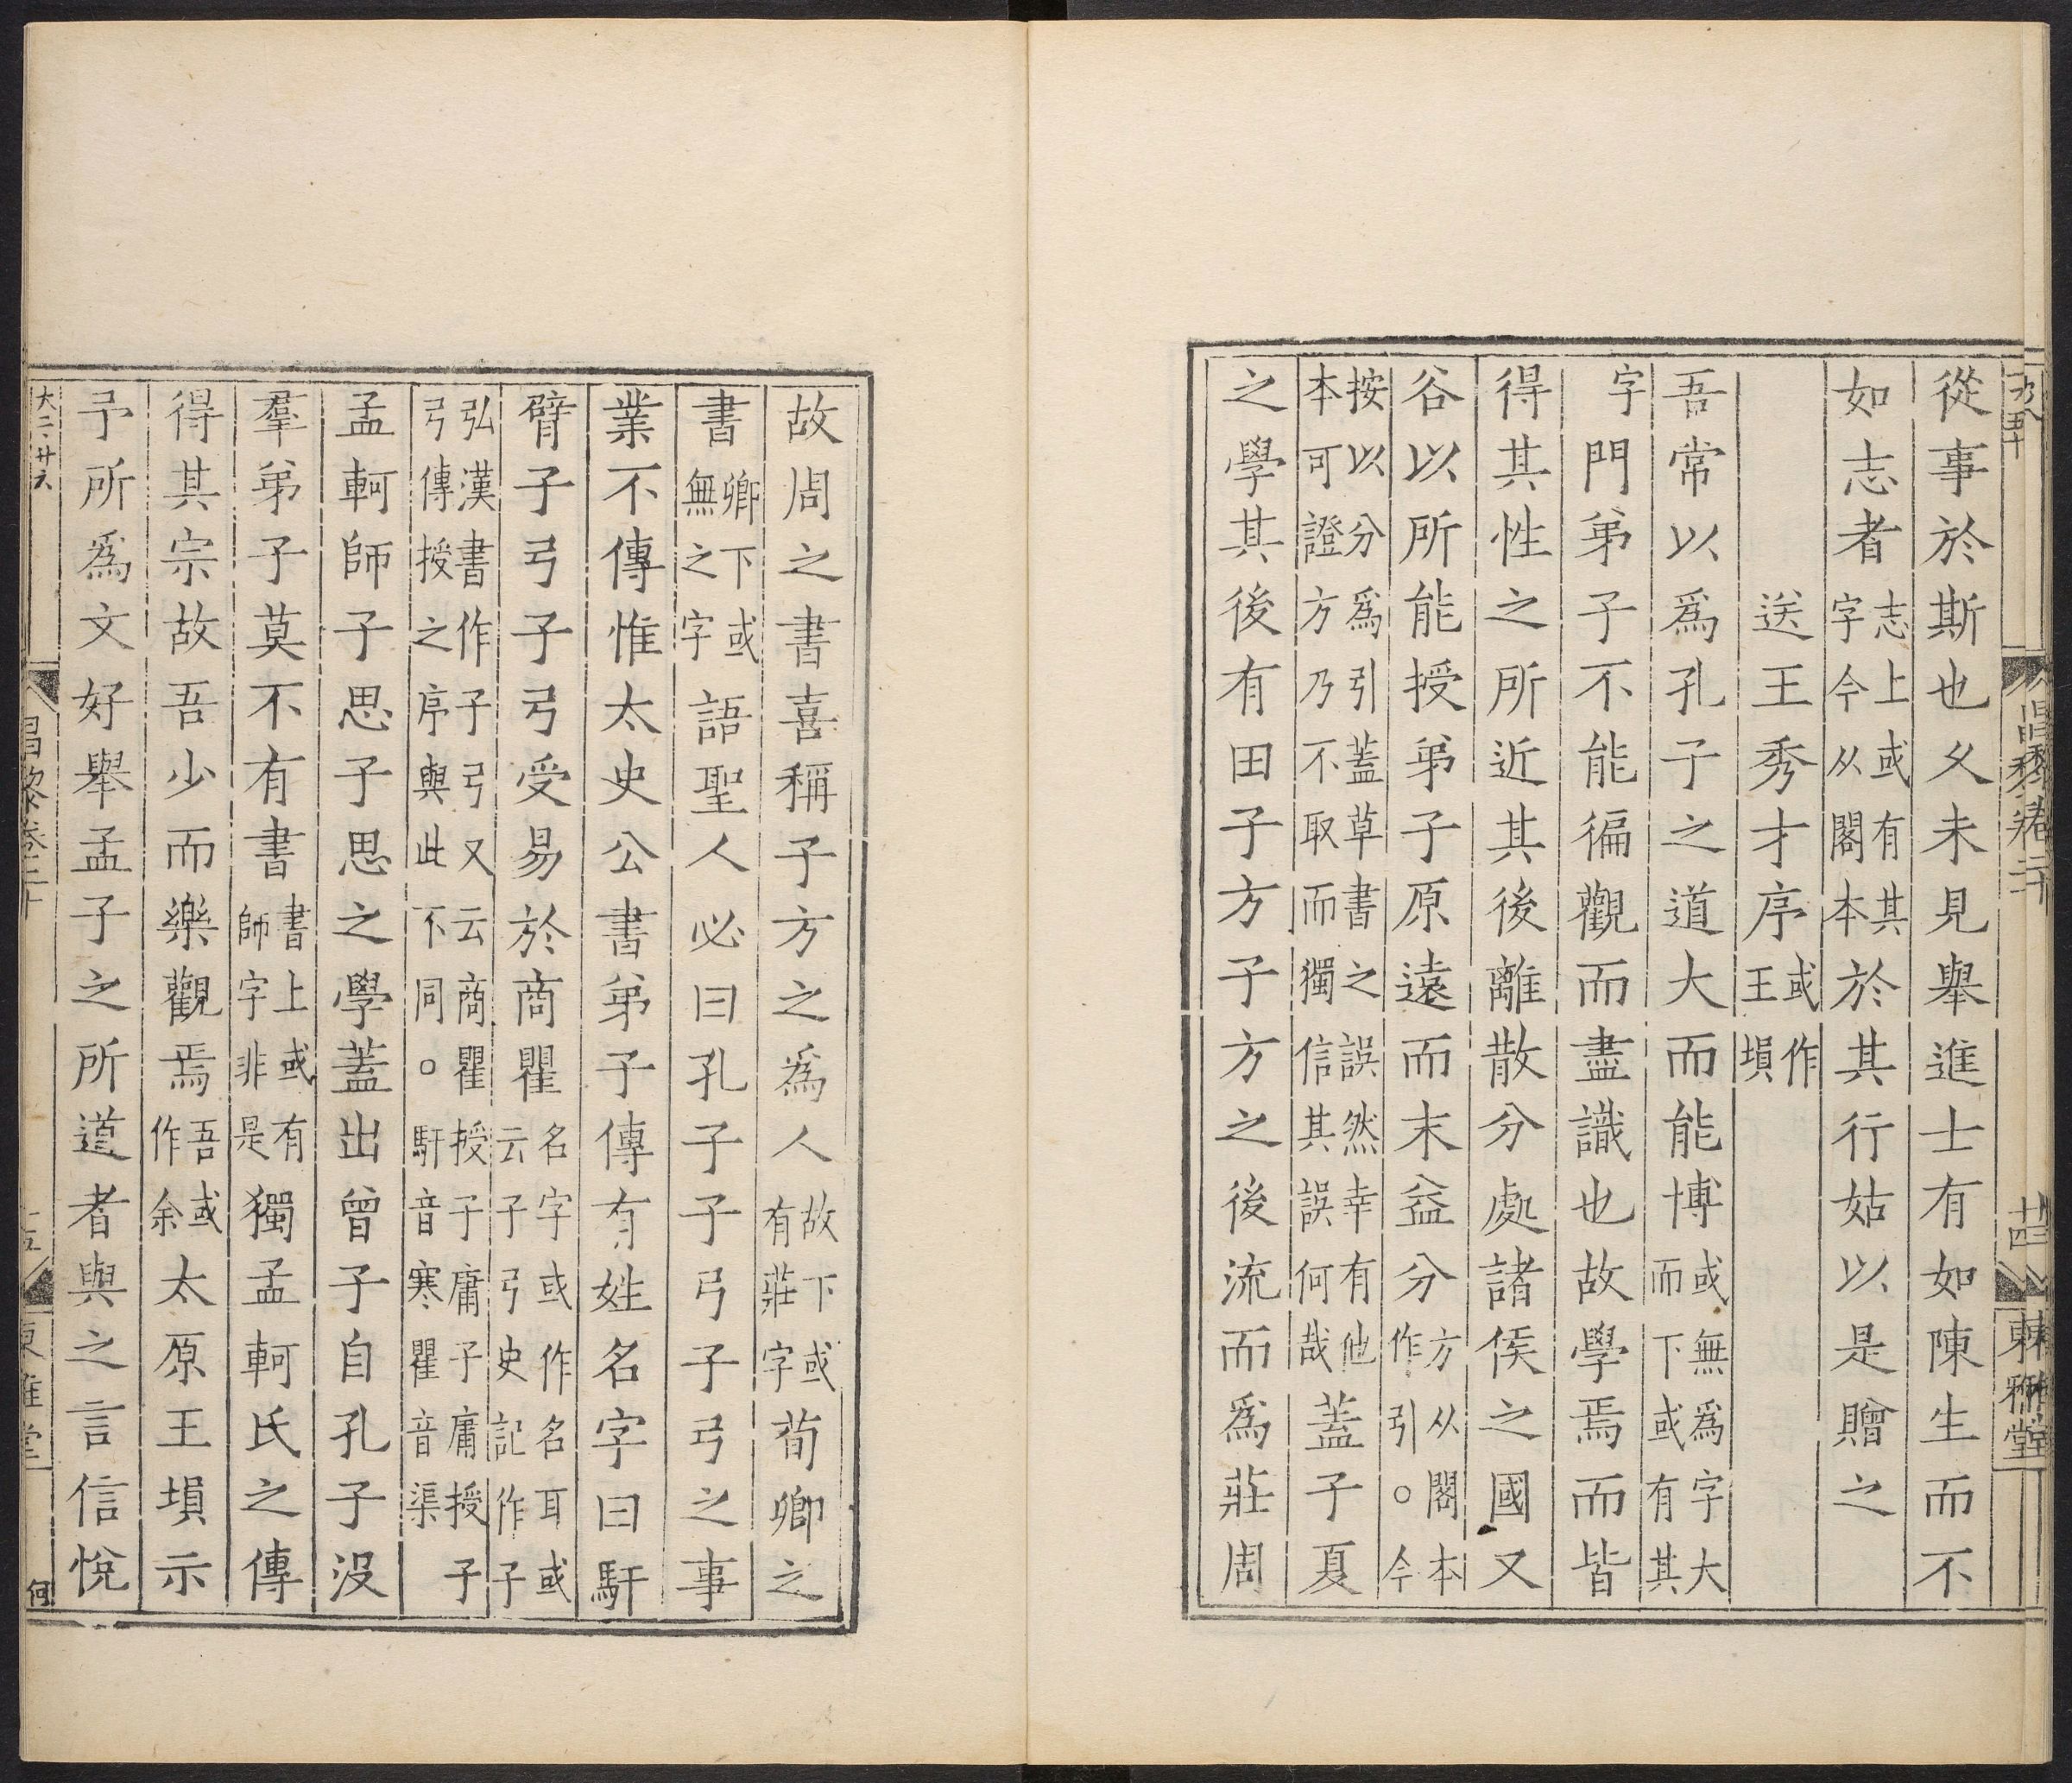 從事於斯也久未見舉進士有如陳生而不
如志者志上或有其字今从閣本於其行姑以是贈之
送王秀才序或作王塤
吾常以爲孔子之道大而能博或無爲字大而下或有其
字門弟子不能徧觀而盡識也故學焉而皆
得其性之所近其後離散分處諸侯之國又
谷以所能授弟子原遠而末益分方从閣本作引○今
按以分爲引蓋草書之誤然幸有他本可證方乃不取而獨信其誤何哉蓋子夏
之學其後有田子方子方之後流而爲莊周
昌黎卷二十
十四
東雅堂
故周之書喜稱子方之爲人故下或有莊字荀卿之
書卿下或無之字語聖人必曰孔子子弓子弓之事
業不傳惟太史公書弟子傳有姓名字曰馯
臂子弓子弓受易於商瞿名字或作名耳或云子弓史記作子
弘漢書作子弓又云商瞿授子庸子庸授子弓傳授之序與此不同○馯音寒瞿音渠
孟軻師子思子思之學蓋出曾子自孔子沒
羣弟子莫不有書書上或有師字非是獨孟軻氏之傳
得其宗故吾少而樂觀焉吾或作余太原王塤示
予所爲文好舉孟子之所道者與之言信悅
昌黎卷二十
東雅堂
何